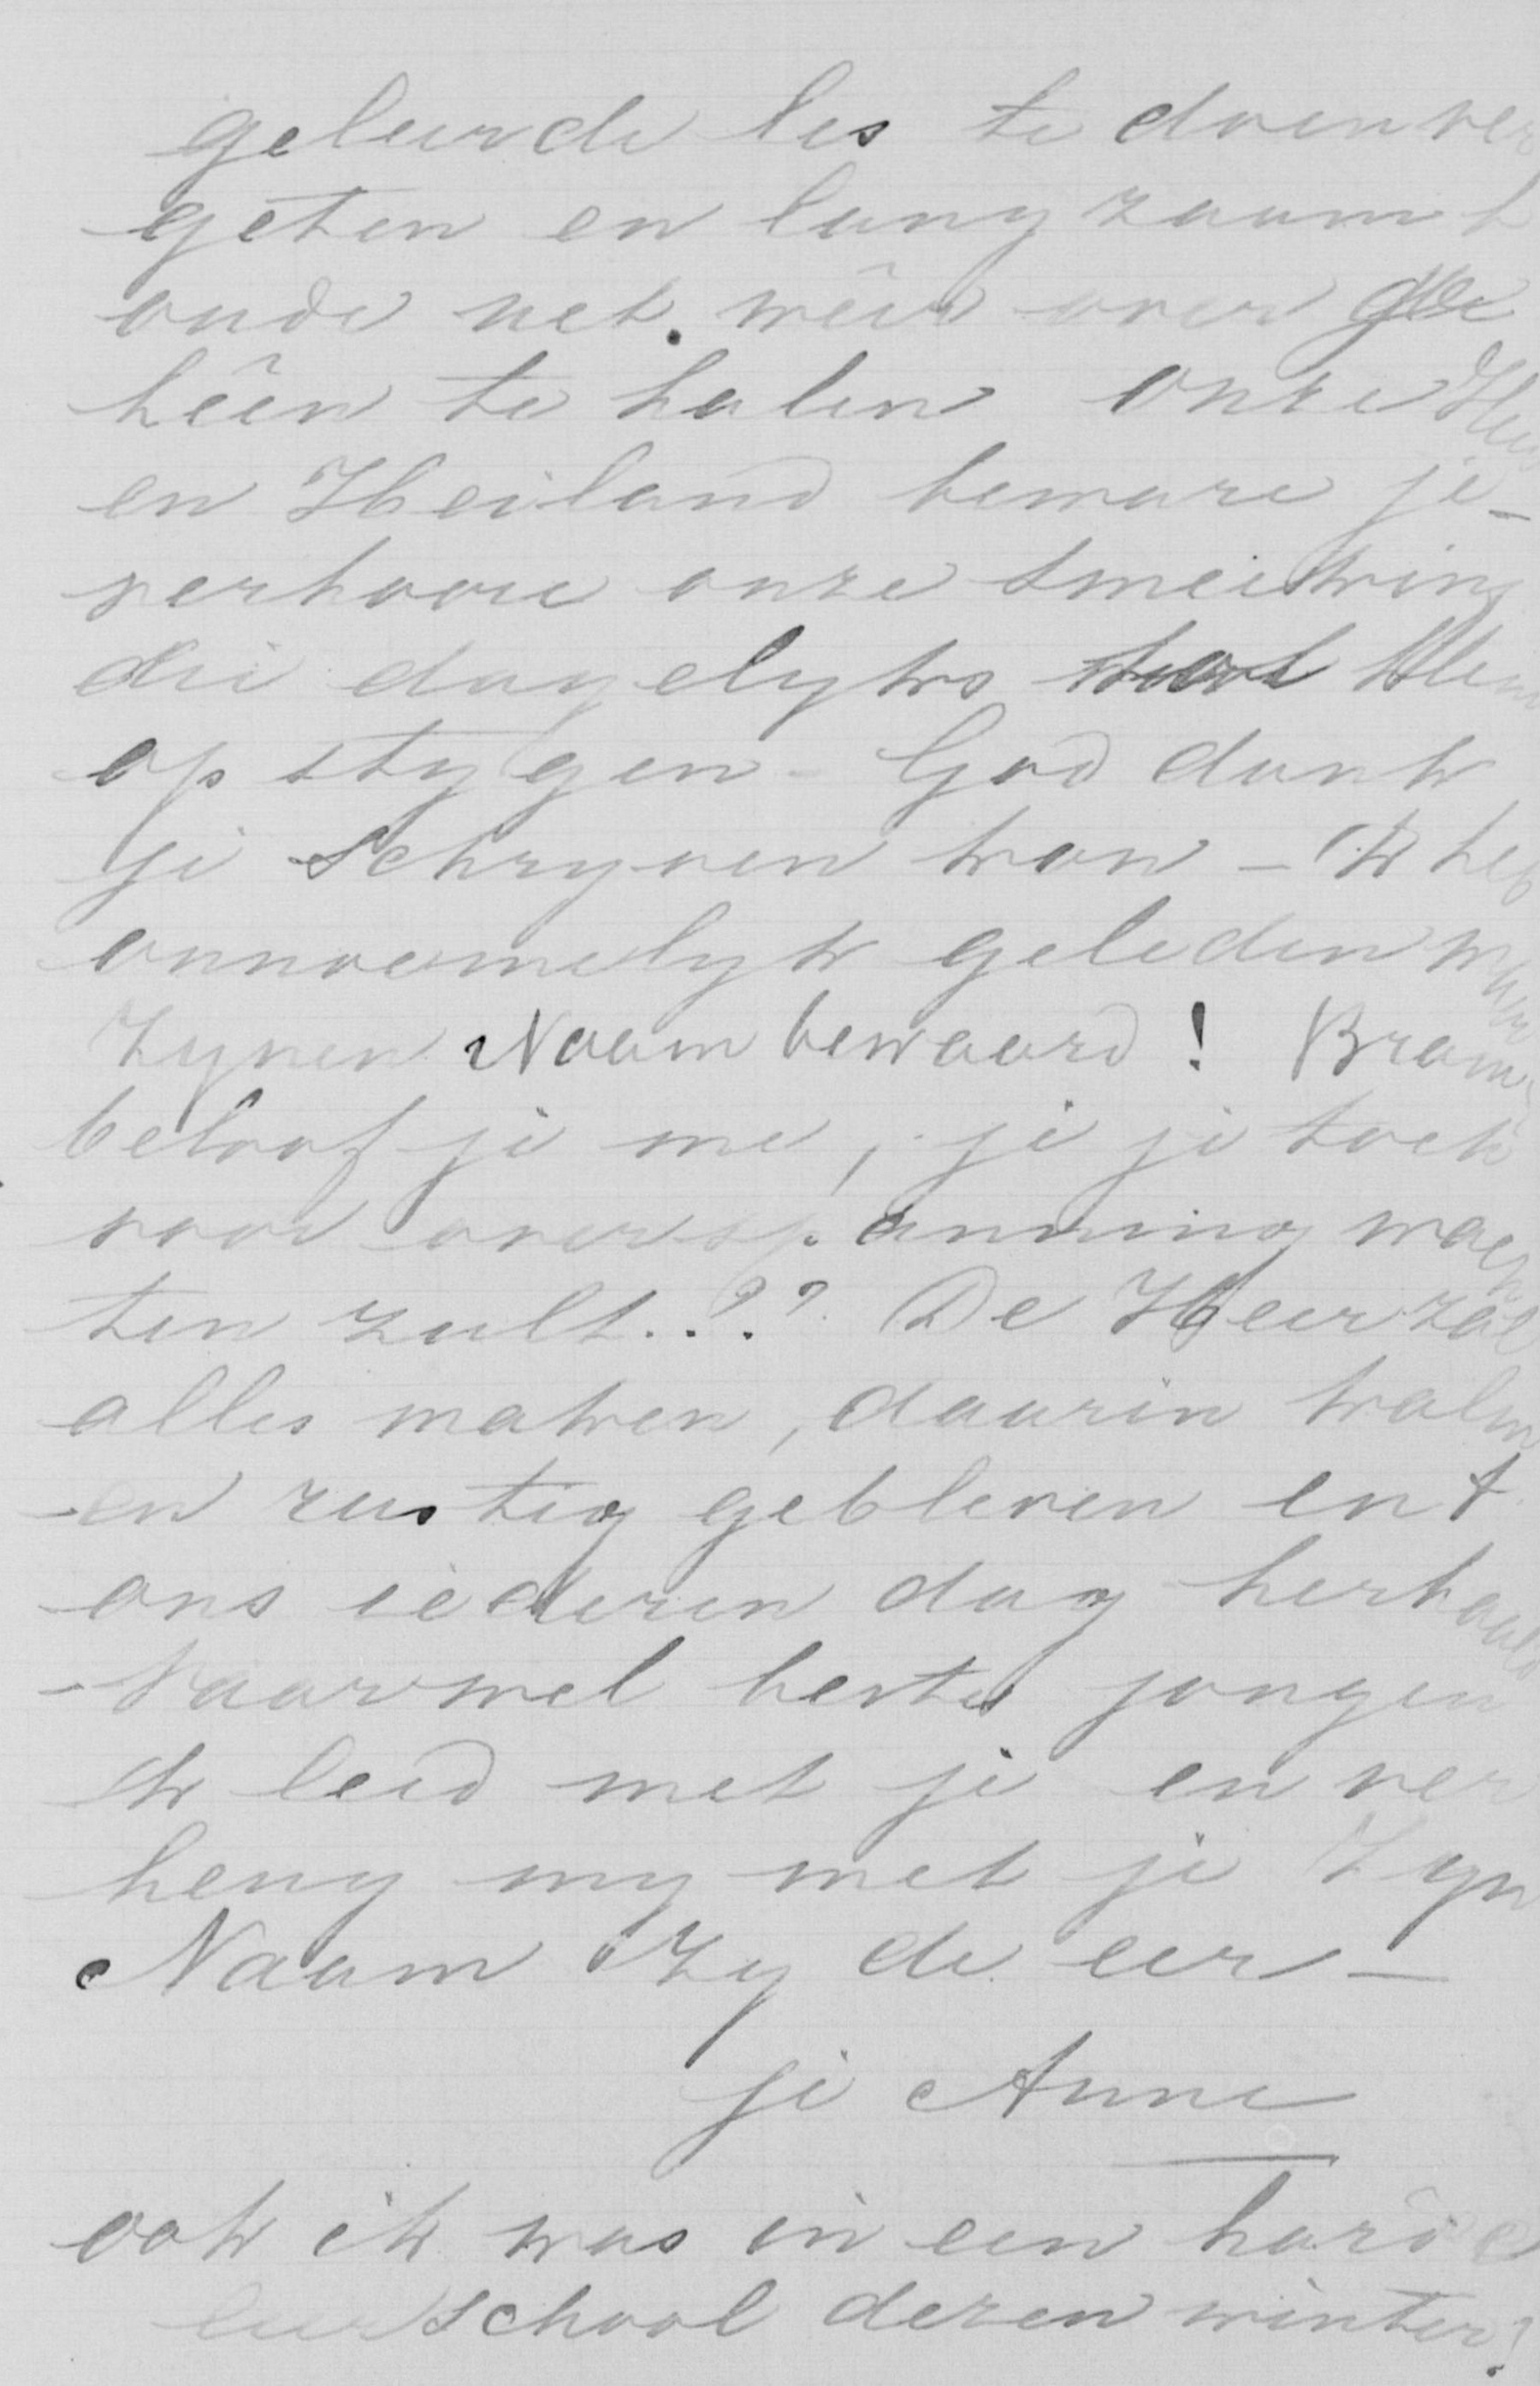 geleerde les te doen ver
geten en langzaam t
oude net weêr over je
hêên te halen onze Heer
en Heiland beware je -
verhoore onze smeeking
die dagelyks tot Hem
op stygen - God dank
je schryven kon - Ik heb
onnoemelyk geleden
Zynen Naam bewaard! Bram
beloof je me, je je toch
voor overspanning wach
ten zult..?? De Heer zal
alles maken, daarin kalm
en rustig gebleven en t
ons iederen dag herhaald
- Vaarwel beste jongen
ik leed met je en ver
heug my met je Zyn
Naam zy de eer -
je Anne
ook ik was in een harde
leerschool dezen winter!